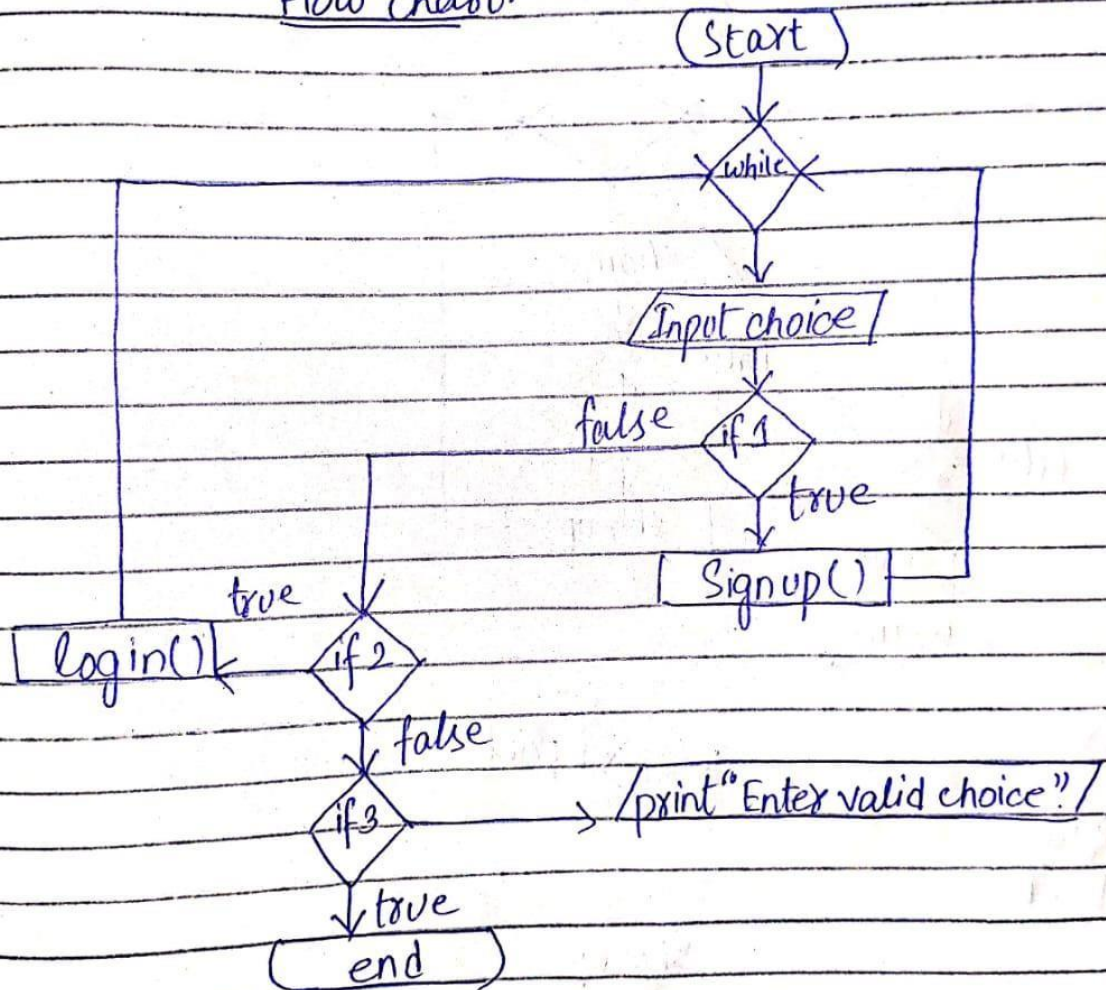 Flow Chart.
Start
while
Input choice
false
if 1
true
Signup()
true
login()
if 2
false
if 3
print "Enter valid choice"
true
end